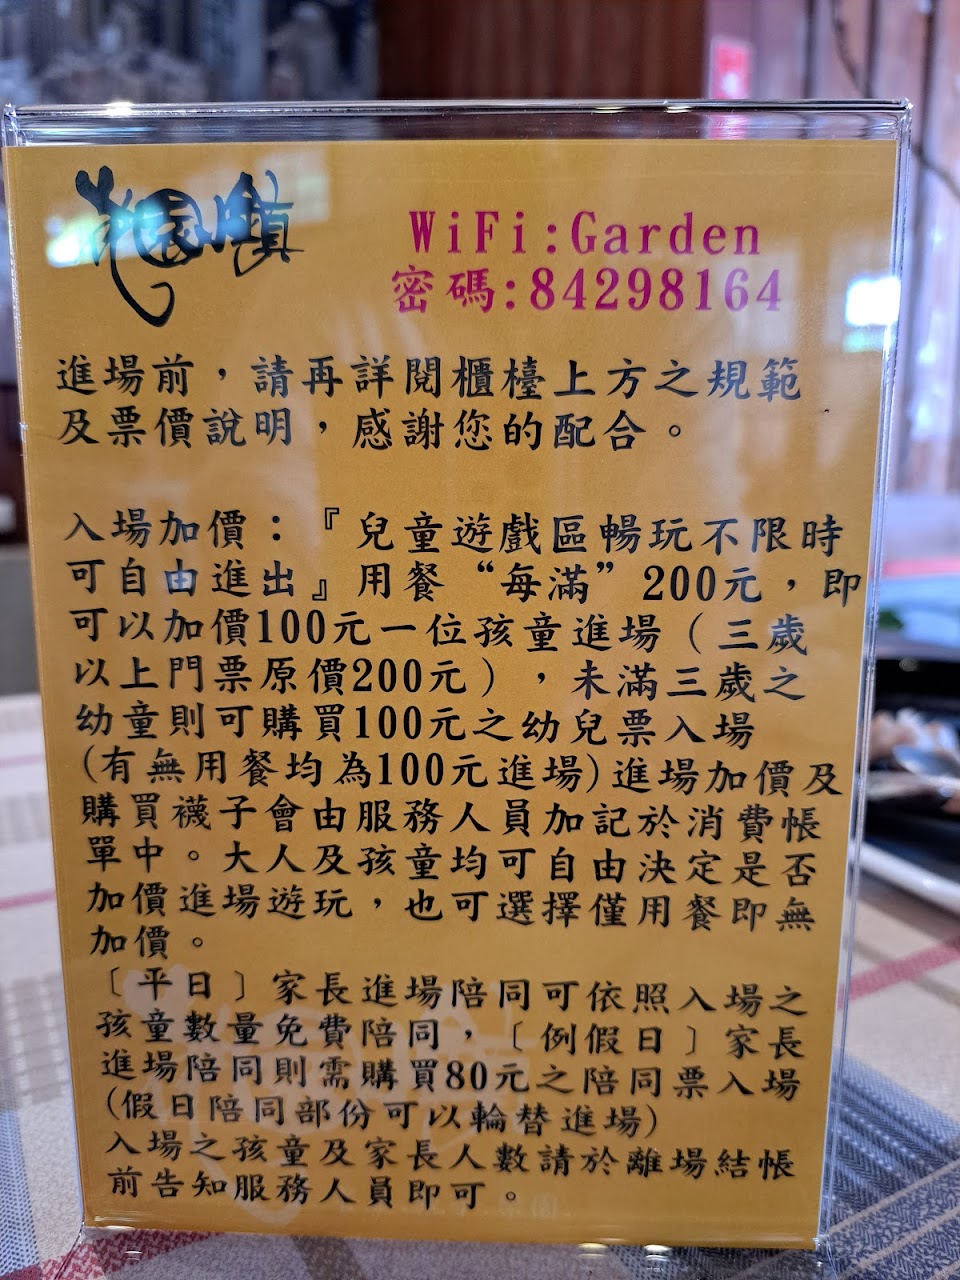 花園小鎮
WiFi:Garden
密碼:84298164
進場前，請再詳閱櫃檯上方之規範
及票價說明，感謝您的配合。
入場加價：『兒童遊戲區暢玩不限時
可自由進出』用餐“每滿”200元，即
可以加價100元一位孩童進場（三歲
以上門票原價200元），未滿三歲之
幼童則可購買100元之幼兒票入場
(有無用餐均為100元進場)進場加價及
購買襪子會由服務人員加記於消費帳
單中。大人及孩童均可自由決定是否
加價進場遊玩，也可選擇僅用餐即無
加價。
〔平日〕家長進場陪同可依照入場之
孩童數量免費陪同，〔例假日〕家長
進場陪同則需購買80元之陪同票入場
(假日陪同部份可以輪替進場)
入場之孩童及家長人數請於離場結帳
前告知服務人員即可。